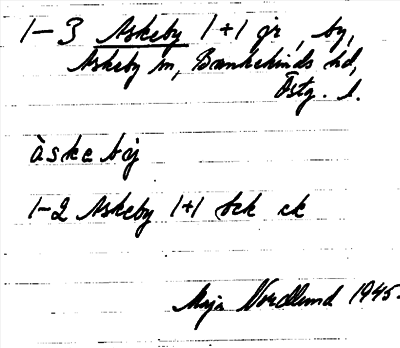 1-3 Askeby 1+1 gr, by,
Askeby sn, Bankekinds hd,
Östg. l.
àskebý
1-2 Askeby 1+1 bek ek
Maja Nordlund 1945.